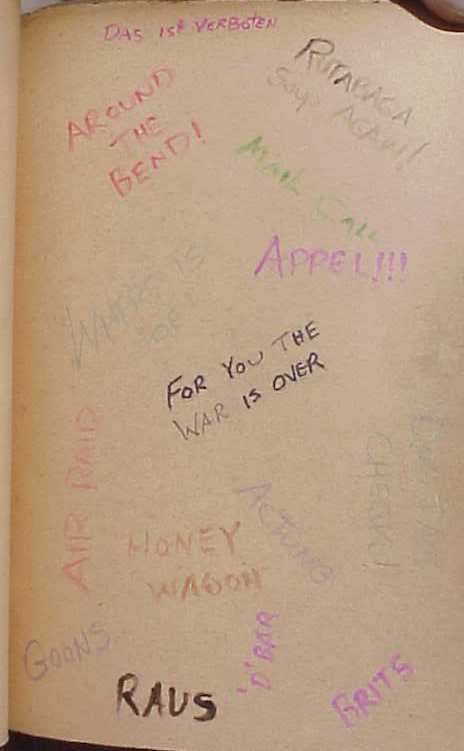 DAS IST VERBOTEN
RUTABAGA
SOUP AGAIN!
AROUND
THE
BEND!
MAIL CALL
APPEL!!!
FOR YOU THE
WAR IS OVER
AIR RAID
CHERRIO!
ACTUNG
HONEY
WAGON
GOONS
'D' BAR
RAUS
BRITS